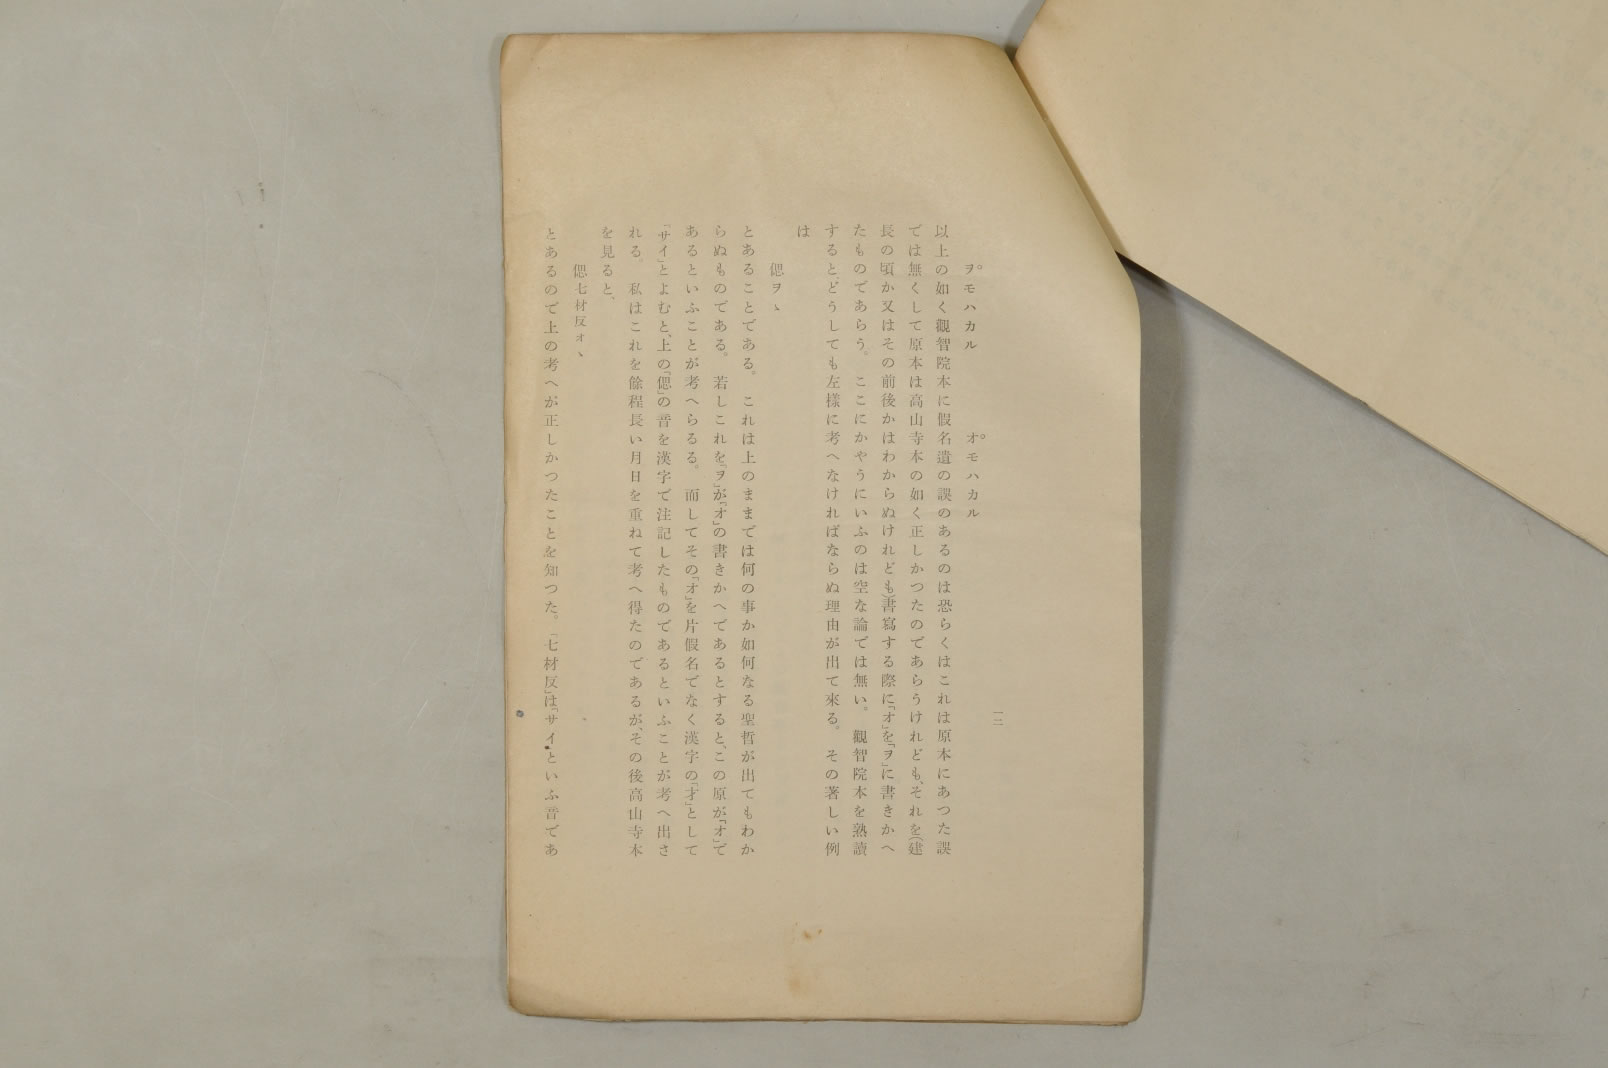 一二
ヲ。モハカル　オ。モハカル
以上の如く觀智院本に假名遣の誤のあるのは恐らくはこれは原本にあつた誤
では無くして原本は高山寺本の如く正しかつたのであらうけれども、それを(建
長の頃か又はその前後かはわからぬけれども)書寫する際に「オ」を「ヲ」に書きかへ
たものであらう。ここにかやうにいふのは空な論では無い。觀智院本を熟讀
すると、どうしても左樣に考へなければならぬ理由が出て來る。その著しい例
は
偲ヲヽ
とあることである。これは上のままでは何の事か如何なる聖哲が出てもわか
らぬものである。若しこれを「ヲ」が「オ」の書きかへであるとすると、この原が「オ」で
あるといふことが考へらるる。而してその「オ」を片假名でなく漢字の「才」として
「サイ」とよむと、上の「偲」の音を漢字で注記したものであるといふことが考へ出さ
れる。私はこれを餘程長い月日を重ねて考へ得たのであるが、その後高山寺本
を見ると、
偲七材反オヽ
とあるので上の考へが正しかつたことを知つた。「七材反」は「サイ」といふ音であ